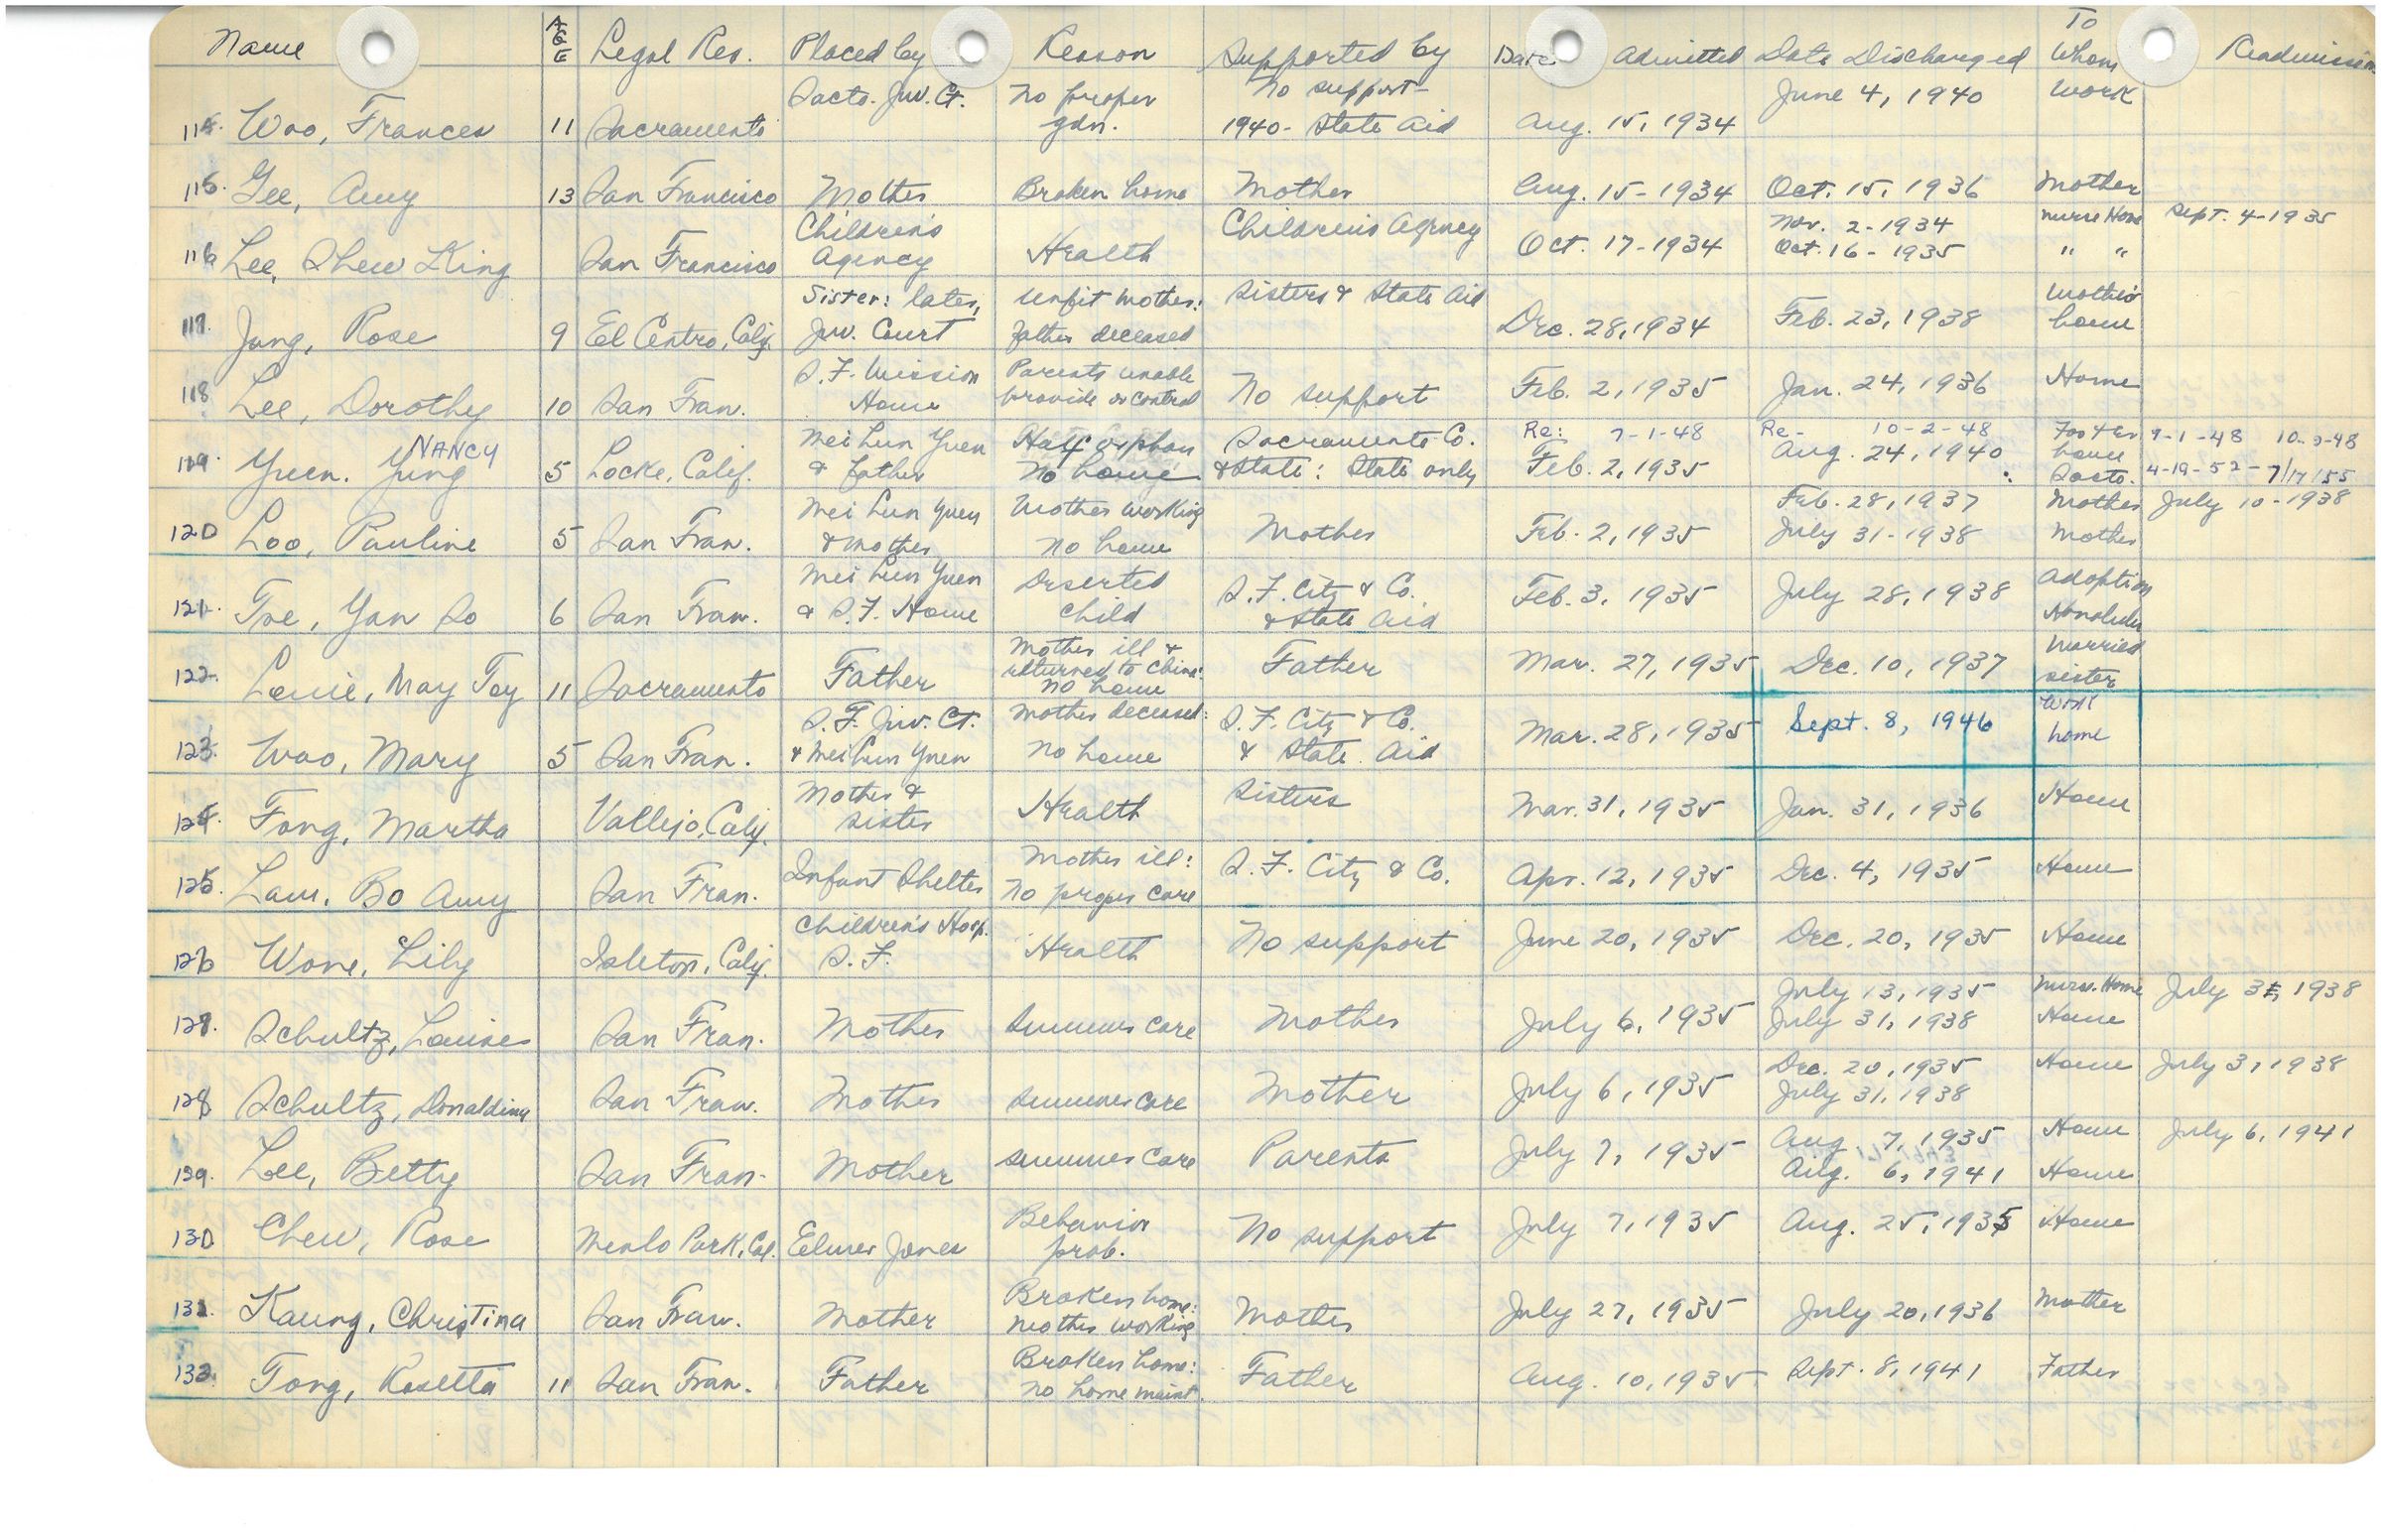 Name AGE Legal Res. Placed by Reason Supported by Date Admitted Date Discharged To Whom Readmission
Sacto. Juv. Ct. No proper No support- June 4, 1940 Work
Woo, Frances 11 Sacramento gdn. 1940- State Aid Aug. 15, 1934
115. Gee, Amy 13 San Francisco Mother Broken home Mother Aug. 15-1934 Oct. 15, 1936 Mother
Children's Children's Agency Nov. 2-1934 Nurse Home Sept. 4-1935
116 Lee, Shew King San Francisco Agency Health Oct. 17-1934 Oct. 16-1935 " "
Sister: later, Unfit mother: Sisters & State Aid Mother's
117. Jung, Rose 9 El Centro, Calif. Juv. Court Father deceased Dec. 28, 1934 Feb. 23, 1938 home
S.F. Mission Parents unable
118 Lee, Dorothy 10 San Fran. Home provide or control No support Feb. 2, 1935 Jan. 24, 1936 Home
NANCY Mei Lun Yuen Half orphan Sacramento Co. Re: 7-1-48 Re- 10-2-48 Foster 7-1-48 10-2-48
119. Yuen. Yung 5 Locke, Calif. & father No home & State: State only Feb. 2, 1935 Aug. 24, 1940 home
Sacto. 4-19-52-7/17/55
Mei Lun Yuen Mother working Feb. 28, 1937 Mother July 10-1938
120 Loo, Pauline 5 San Fran. & mother No home Mother Feb. 2, 1935 July 31-1938 Mother
Mei Lun Yuen Deserted S.F. City & Co. Adoption
121. Toe, Yan So 6 San Fran. & S.F. Home child & State Aid Feb. 3, 1935 July 28, 1938 Honolulu
Mother ill & Married
returned to China:
122. Louie, May Toy 11 Sacramento Father No home Father Mar. 27, 1935 Dec. 10, 1937 sister
S.F. Juv. Ct. Mother deceased: S.F. City & Co. Work
123. Woo, Mary 5 San Fran. & Mei Lun Yuen No home & State Aid Mar. 28, 1935 Sept. 8, 1946 home
Mother & Sisters
124. Fong, Martha Vallejo, Calif. sister Health Mar. 31, 1935 Jan. 31, 1936 Home
Mother ill:
125. Lam, Bo Amy San Fran. Infant Shelter No proper care S.F. City & Co. Apr. 12, 1935 Dec. 4, 1935 Home
Children's Hosp.
126 Wone, Lily Isleton, Calif. S.F. Health No support June 20, 1935 Dec. 20, 1935 Home
July 13, 1935 Nurs. Home July 3, 1938
127. Schultz, Louise San Fran. Mother Summer care Mother July 6, 1935 July 31, 1938 Home
Dec. 20, 1935 Home July 3, 1938
128 Schultz, Donaldina San Fran. Mother Summer care Mother July 6, 1935 July 31, 1938
Aug. 7, 1935 Home July 6, 1941
129. Lee, Betty San Fran. Mother Summer care Parents July 7, 1935 Aug. 6, 1941 Home
Behavior
130 Chew, Rose Menlo Park, Cal. Elmer Jones prob. No support July 7, 1935 Aug. 25, 1935 Home
Broken home:
131. Kaung, Christina San Fran. Mother Mother working Mother July 27, 1935 July 20, 1936 Mother
Broken home:
132. Tong, Rosetta 11 San Fran. Father No home maint. Father Aug. 10, 1935 Sept. 8, 1941 Father